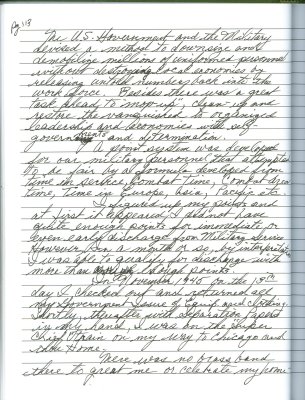 Pg 118
The U.S. Government and the Military
devised a method to downsize and
demobilize millions of uniformed personnel
without destroying local economies by
releasing untold numbers back into the
work force. Besides there was a great
task ahead to mop-up, clean up and
restore the vanquished to organized
leadership and economies with self
governments and determination.
A point system was developed
for our military personnel that attempted
to be fair by a formula developed from
time in the service, Combat Time, Combat Area
time, Time in Europe, Asia, Pacific etc.
I figured up my points and
at first it appeared I did not have
quite enough points for immediate or
even early discharge from Military service.
However in a month or so, by interpretation
I was able to qualify for discharge with
more than enough points.
In November 1945 on the 15th
day I checked out and returned all
my Government Issue of Equip. and Clothing.
Shortly, thereafter with Separation Papers
in my hand, I was on the Super
Chief Train on my way to Chicago and
then Home.
There was no brass band
there to great me or celebrate my home